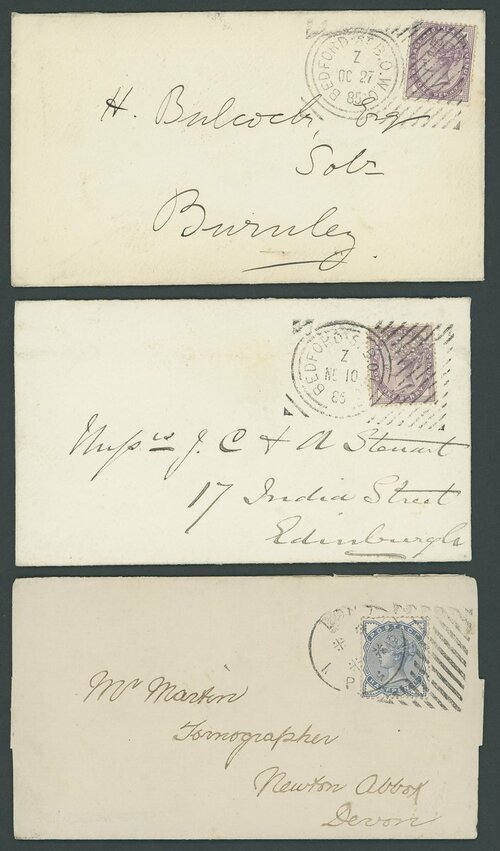 BEDFORD ST. B.O. W.C
Z
OC 27
85
H. Bulcock, Esq
Solr
Burnley.
BEDFORD S.
Z
NO 10
85
Messrs J. C & A Steuart
17 India Street
Edinburgh
Mr Martin
Tornographer
Newton Abbot
Devon